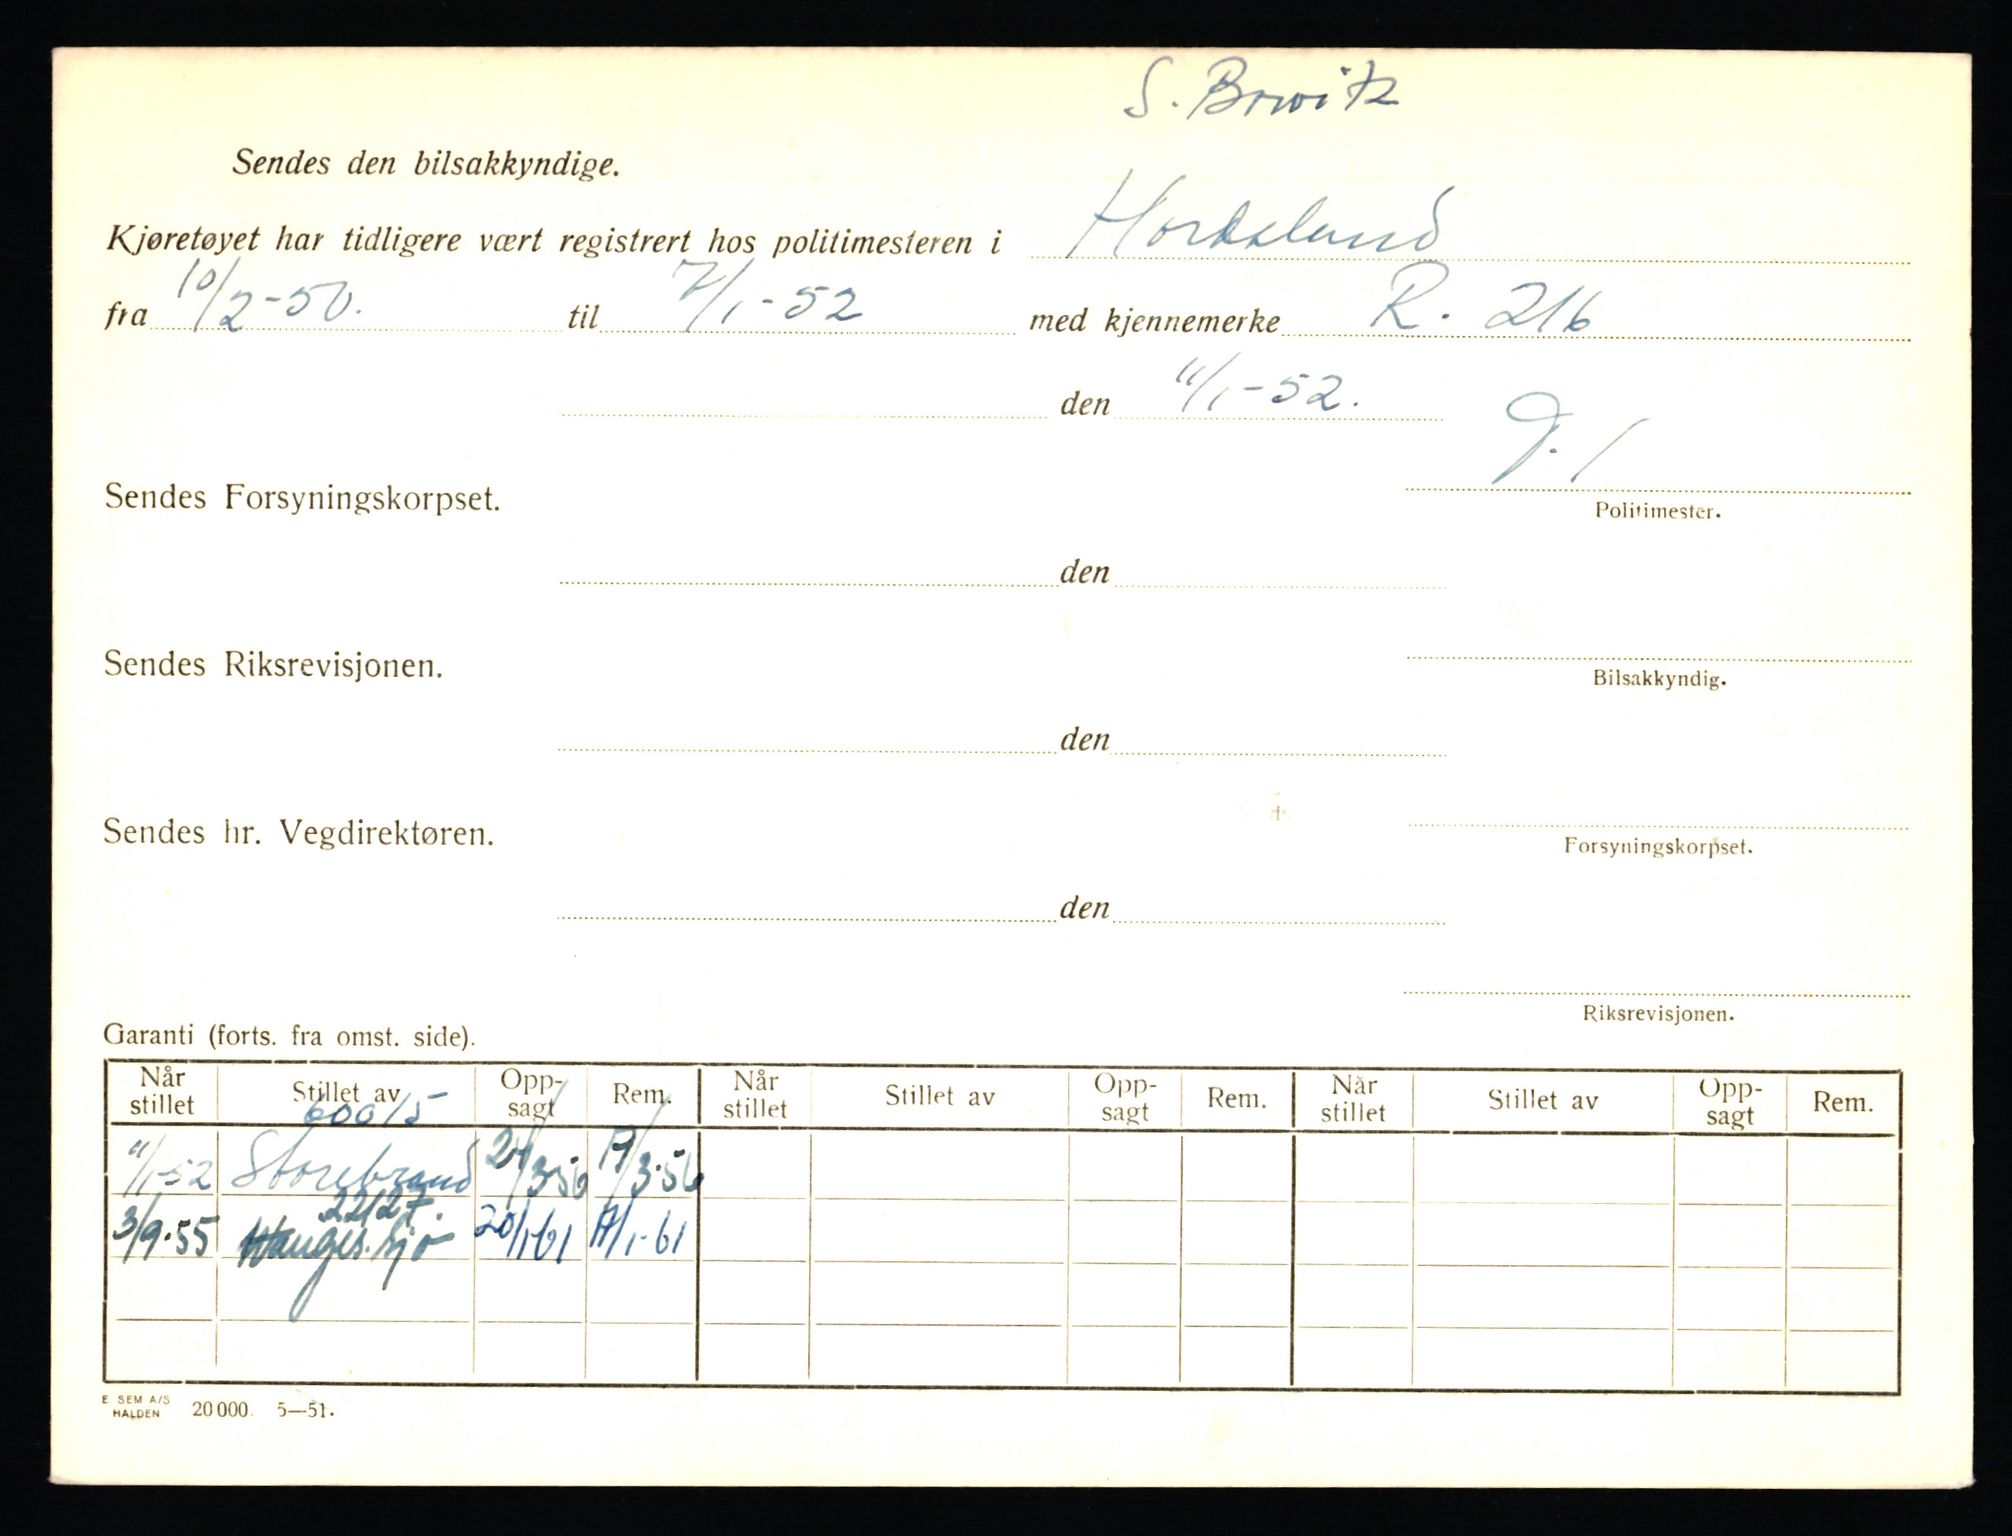 S.
Sendes den bilsakkyndige.
Kjøretøyet har tidligere vært registrert hos politimesteren i Hordaland
fra 10/2-50. til 7/1-52 med kjennemerke R. 216
den 11/1-52.
Sendes Forsyningskorpset.
Politimester.
den
Sendes Riksrevisjonen.
Bilsakkyndig.
den
Sendes hr. Vegdirektøren.
Forsyningskorpset.
den
Riksrevisjonen.
Garanti (forts. fra omst. side).
Når stillet Stillet av Opp-sagt Rem. Når stillet Stillet av Opp-sagt Rem. Når stillet Stillet av Opp-sagt Rem.
60015
11/1-52 Storebrand 24/3-56 17/3-56
22127.
3/9-55 20/1-61 17/1-61
E. SEM A/S
HALDEN 20 000. 5—51.